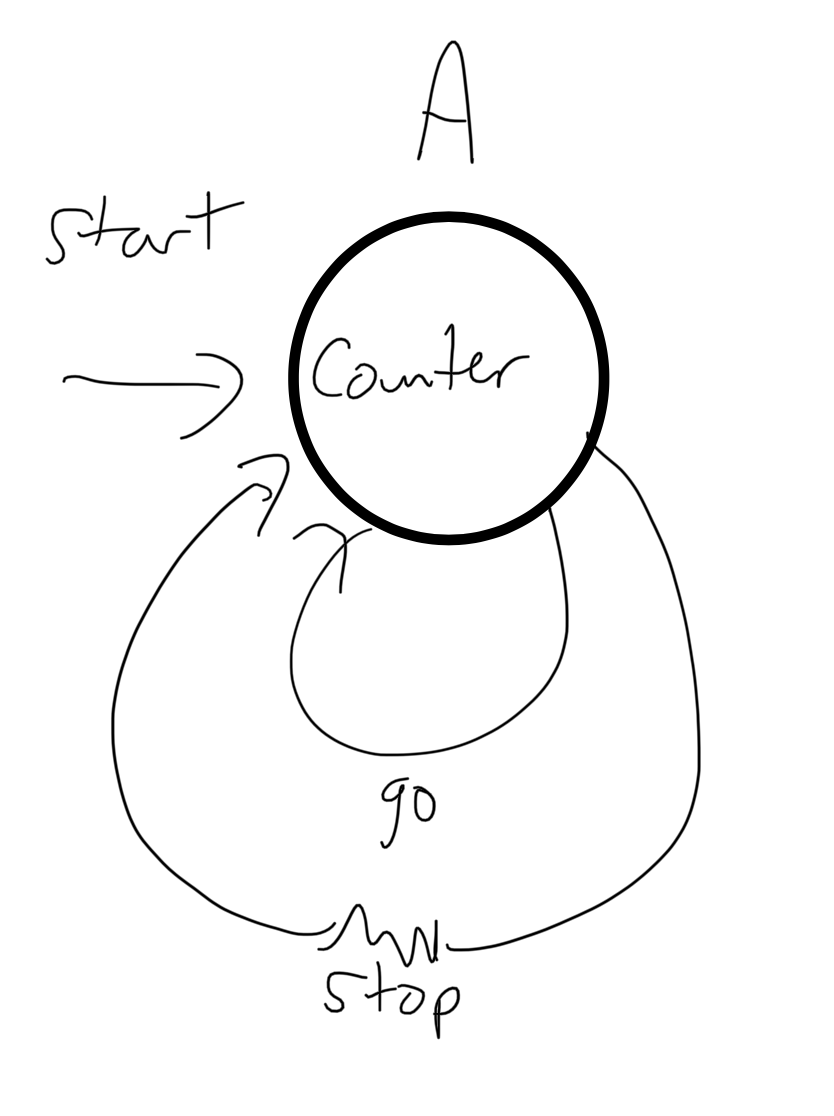 A
start
Counter
go
stop